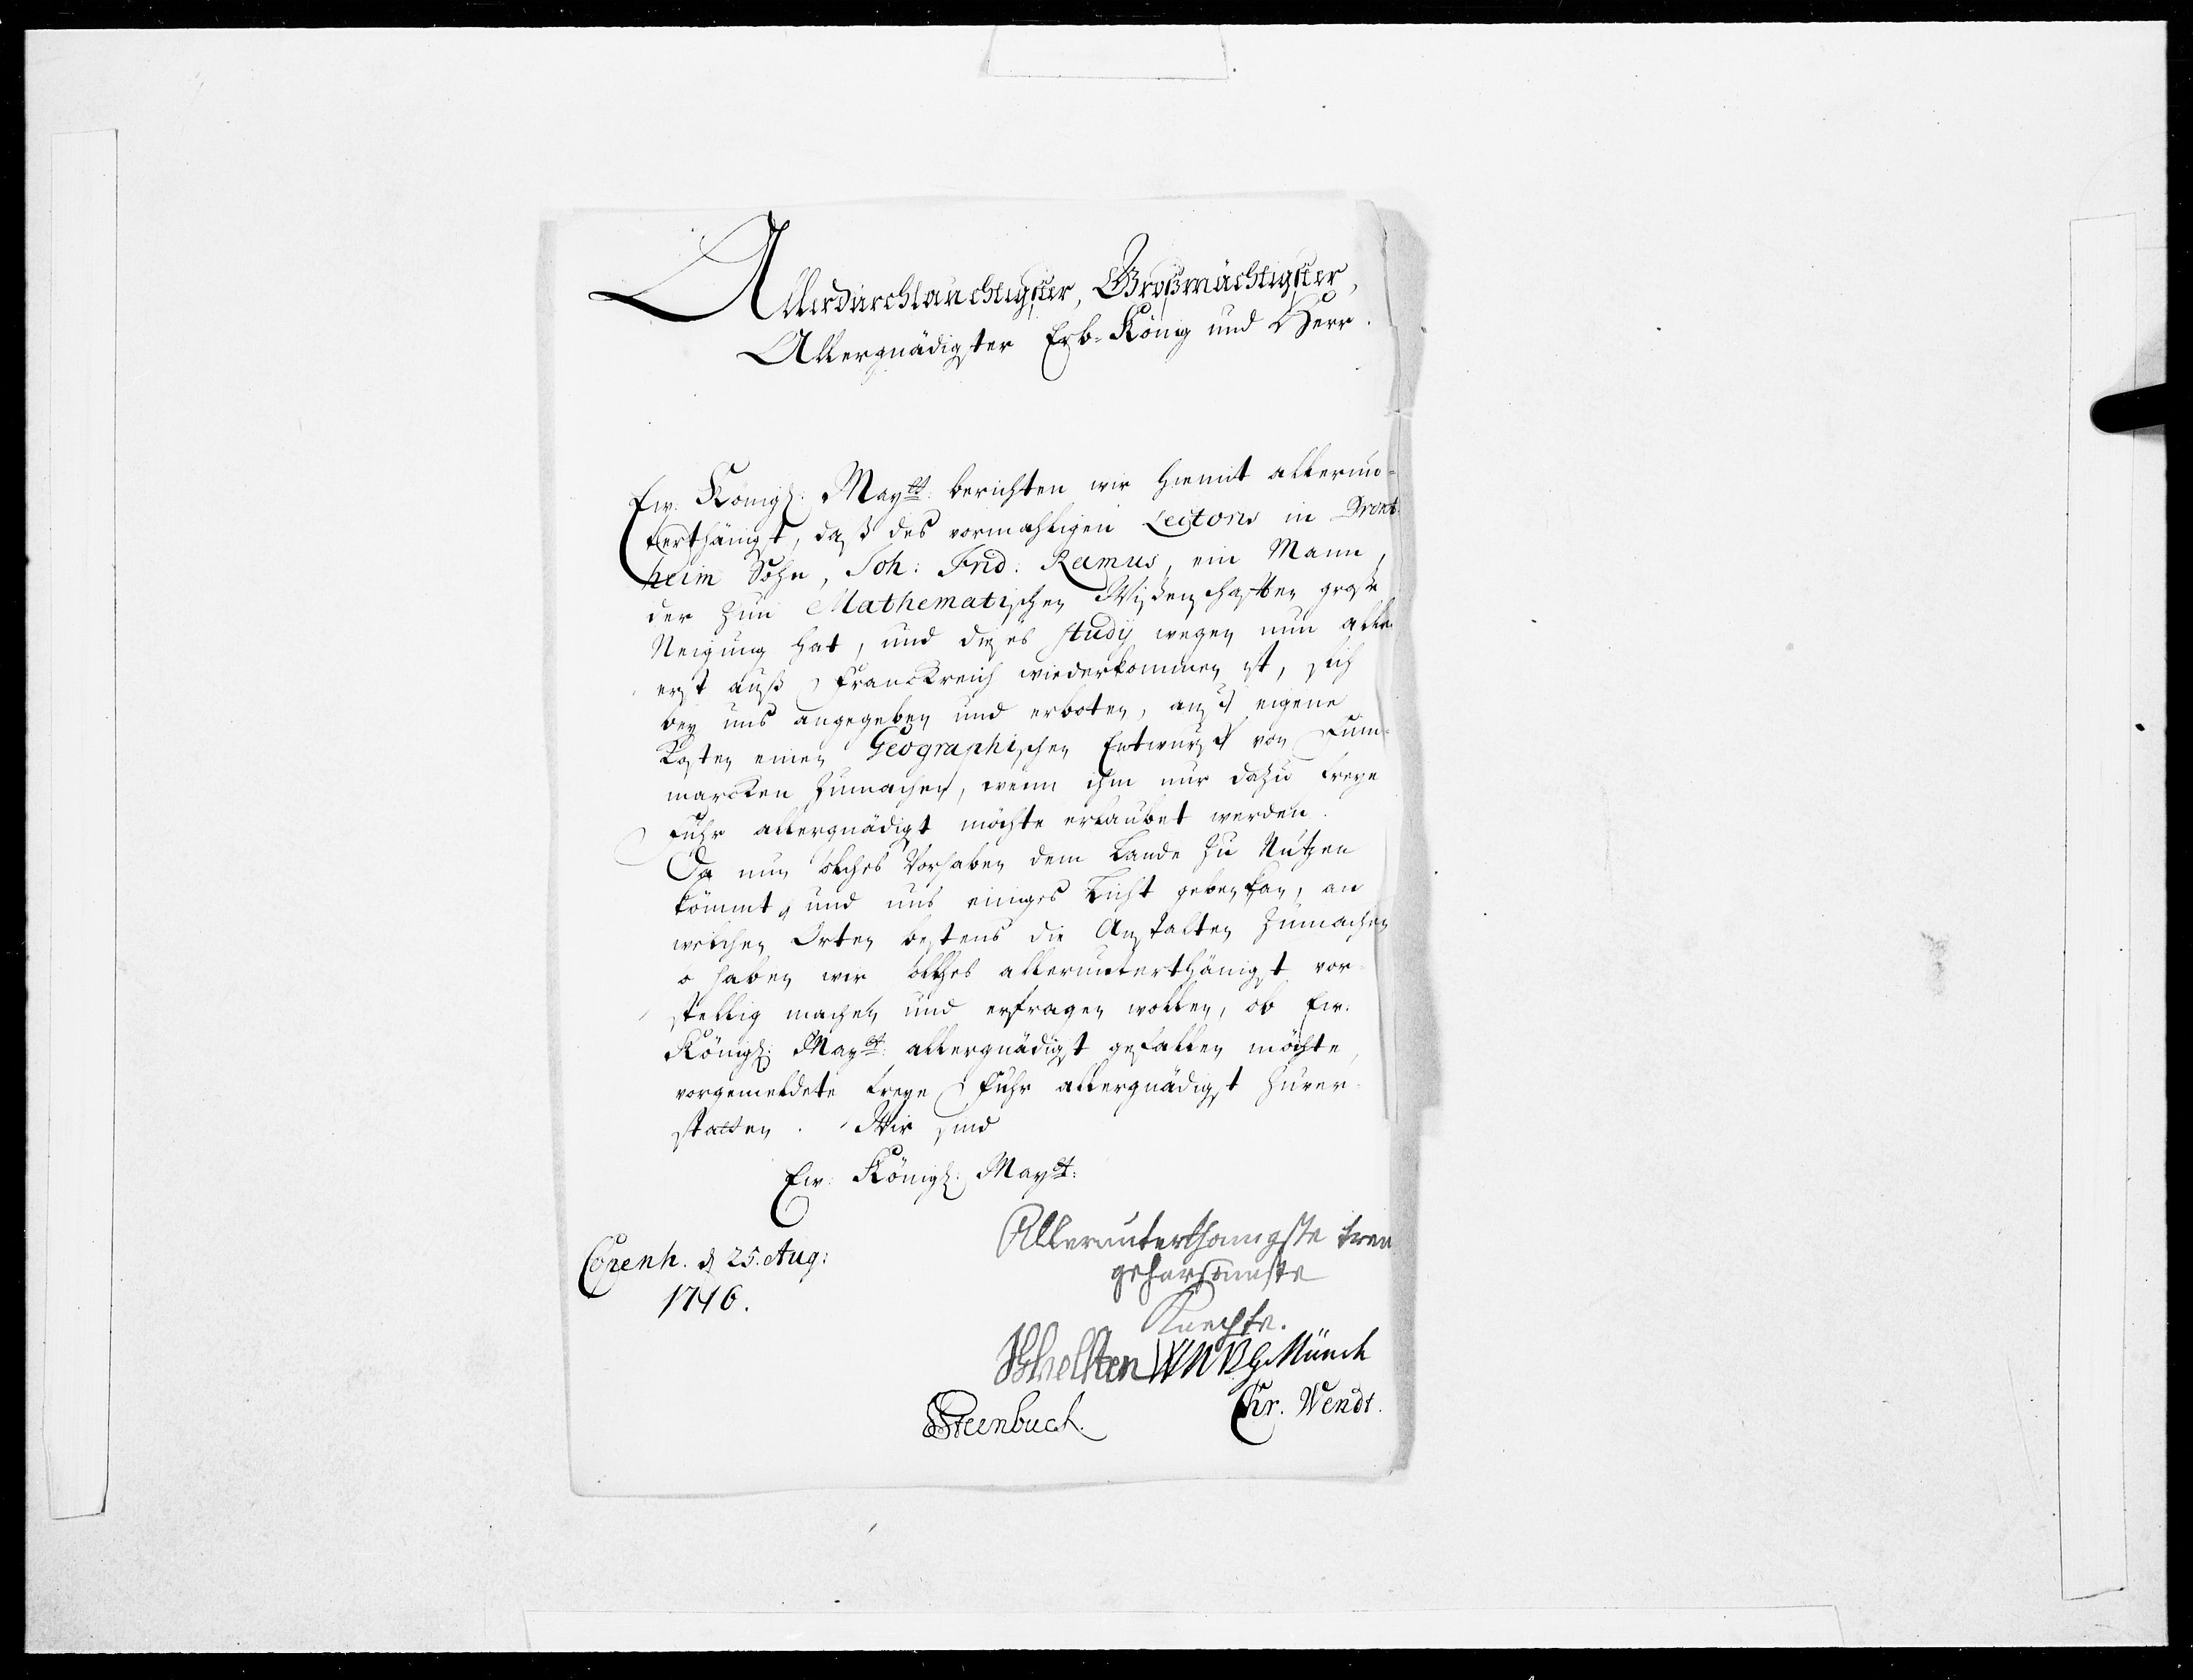 Allerdurchlauchtigster, Großmächtigster,
Allergnädigster Erb-König und Herr.
Ew. Königl: Maytt: berichten wir hiemit allerun-
terthänigst, daß des vormahligen Lectoris in Dront-
heim Sohn, Joh: Frid: Ramus, ein Mann,
der zun Mathematischen Wißenschafften große
Neigung hat, und dieses studij wegen nun aller-
erst auß Franckreich wiederkommen ist, sich
bey uns angegeben und erboten, auff eigene
Kosten einen Geographischen Entwurff von Finn-
marcken zumachen, wenn ihm nur dazu freye
Fuhr allergnädigst möchte erlaubet werden.
Da nun solches Vorhaben dem Lande zu Nutzen
kömmt, und uns einiges Licht geben kan, an
welchen Orten bestens die Anstalten zumachen
so haben wir solches allerunterthänigst vor-
stellig machen und erfragen wollen, ob Ew.
Königl: Maytt: allergnädigst gefallen möchte,
vorgemeldete freye Fuhr allergnädigst zuver-
statten. Wir sind
Ew: Königl: Maytt:
Allerunterthänigste treu
gehorsamste
Knechte.
Copenh. d 25. Aug:
1716.
Scholten WMBG Münch
Steenbuch.
Chr. Wendt.